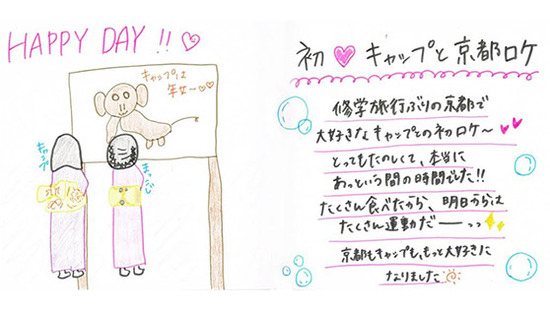 HAPPY DAY !! ♡
キャップは
年女ー♡♡
キャップ
初♥キャップと京都ロケ
修学旅行ぶりの京都で
大好きなキャップとの初ロケ〜♥♥
とってもたのしくて、本当に
あっという間の時間でした!!
たくさん食べたから、明日からは
たくさん運動だーーっっ
京都もキャップも、もっと大好きに
なりました